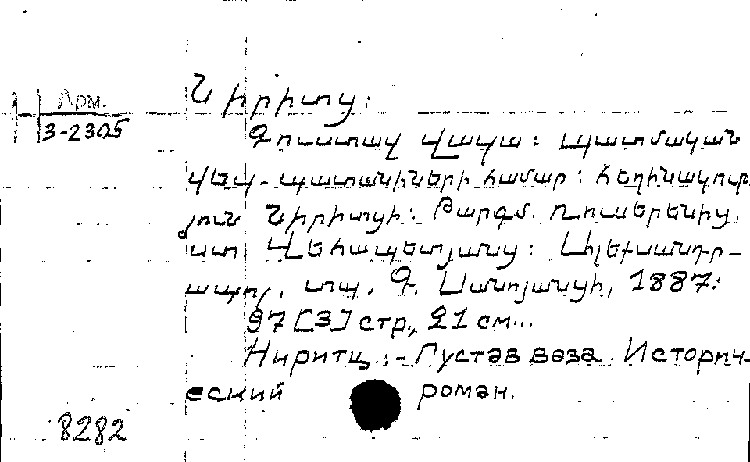 Арм.
3-2305
Նիրիտց։
Գուստավ Վազա։ Պատմական
վեպ-պատանիների համար։ Հեղինակութ
յուն Նիրիտցի։ Թարգմ. Ռուսերենից.
Վեհապետյանց։ Ալեքսանդր-
ապոլ, տպ. Գ. Սանոյանցի, 1887։
97 [3] стр., 21 см...
Ниритц:- Густав ваза. Историч-
еский роман.
8282